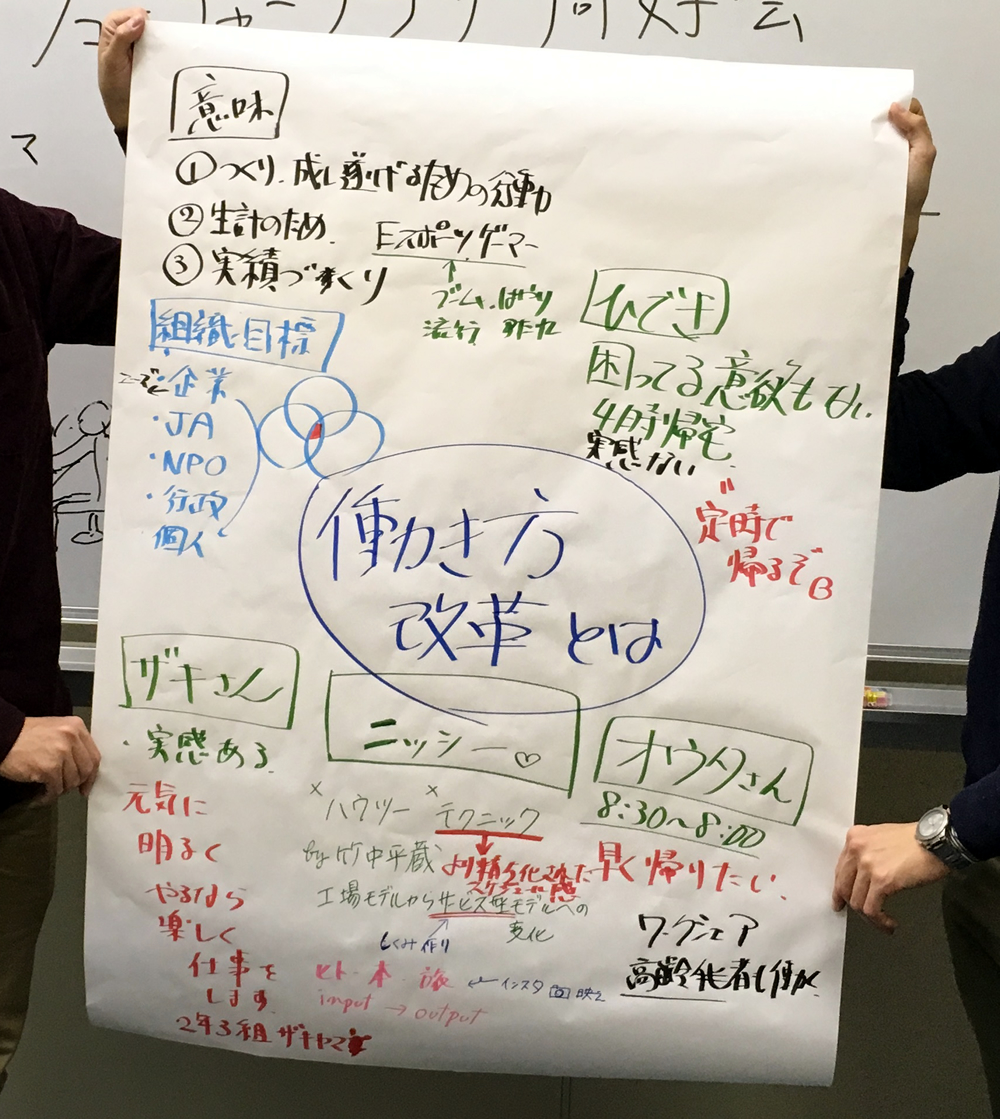 意味
①つくり、成し遂げるための行動
②生計のため
③実績づくり
Eスポーツ、ゲーマー
↑
ブーム、はやり
流行
組織目標
ニーズ
・企業
・JA
・NPO
・行政
個人
ひでき
困ってる意欲も
帰宅
実感ない
定時で
帰るぞB
働き方
改革とは
ザキさん
・実感ある
元気に
明るく
やるなら
楽しく
仕事を
します
2年3組 ザキヤマ
ニッシー♡
×ハウツー ×テクニック
by 竹中平蔵
より精え化された
スケジュール感
工場モデルからサービス型モデルへの
変化
しくみ作り
ヒト・本・旅 ←インスタ 映え
input → output
オウタさん
8:30〜8:00
早く帰りたい
ワークシェア
高齢化者も働か